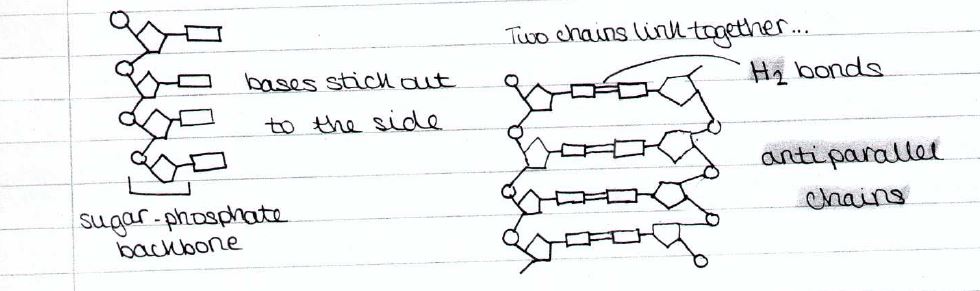 bases stick out
to the side
sugar-phosphate
backbone
Two chains link together...
H₂ bonds
antiparallel
chains